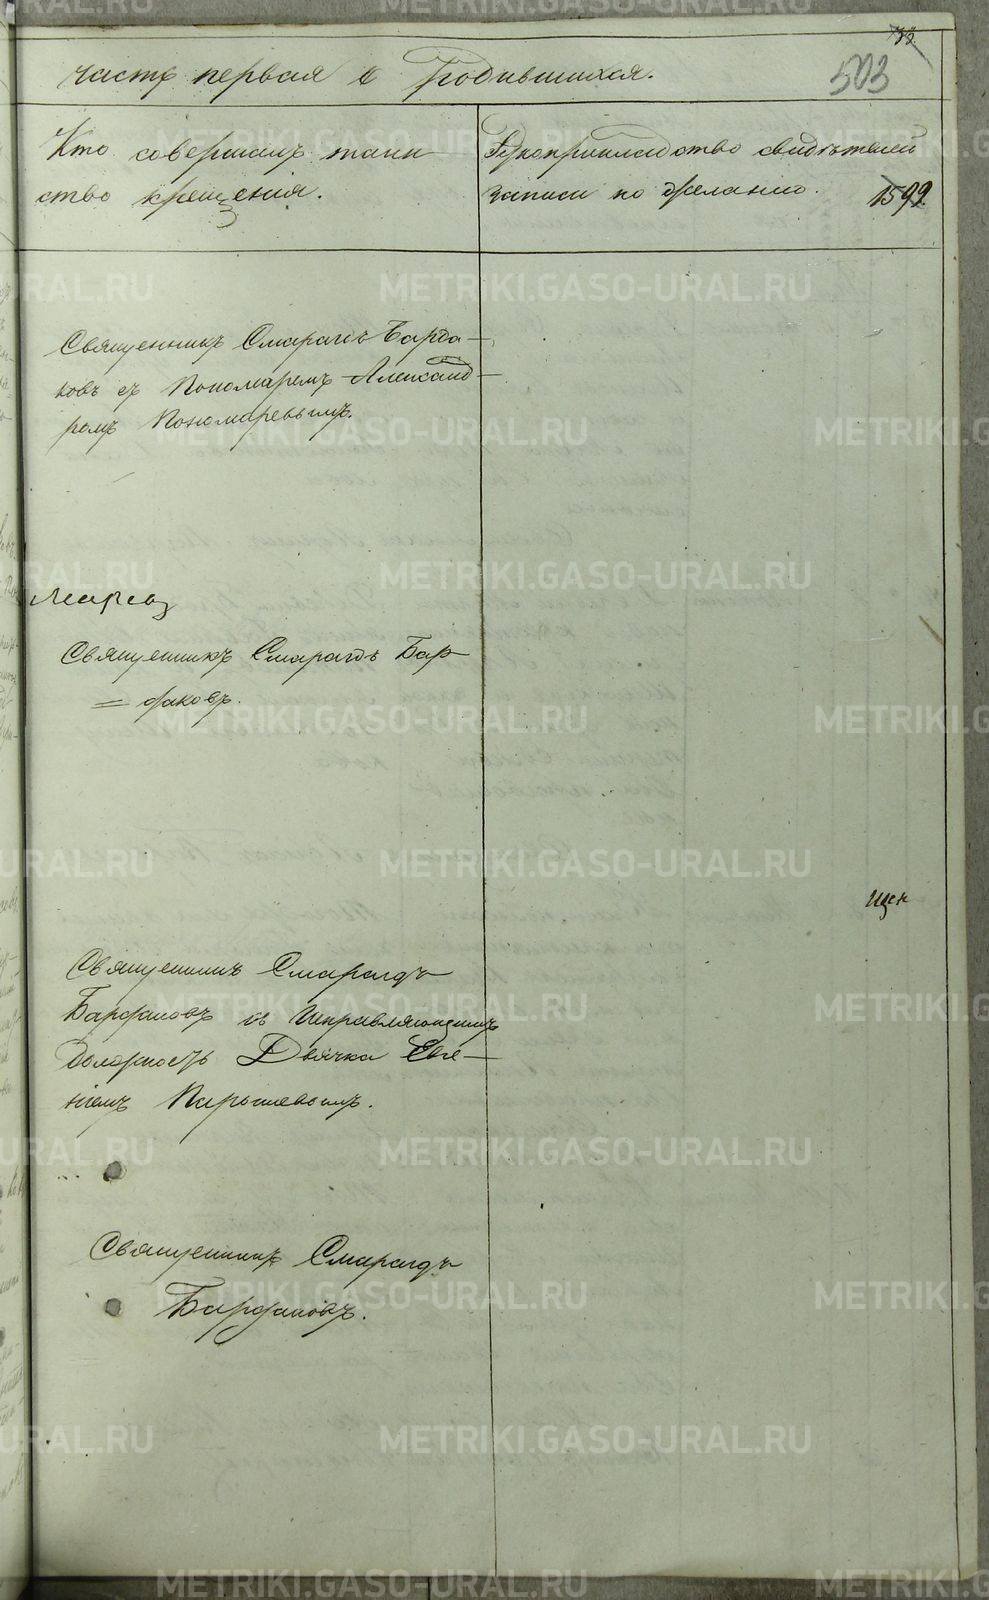 33
503
часть первая о Родившихся.
Кто совершалъ таин
ство крещенія.
Рукоприкладство свидѣтелей
записи по желанію.
1599
Священникъ Смарагдъ Барда-
ковъ съ Пономаремъ Александ-
ромъ Пономаревымъ.
Священникъ Смарагдъ Бар
= даковъ.
Священникъ Смарагдъ
Бардаковъ съ Исправляющимъ
Должность Дьячка Евге-
ніемъ
Священникъ Смарагдъ
Бардаковъ.
METRIKI.GASO-URAL.RU